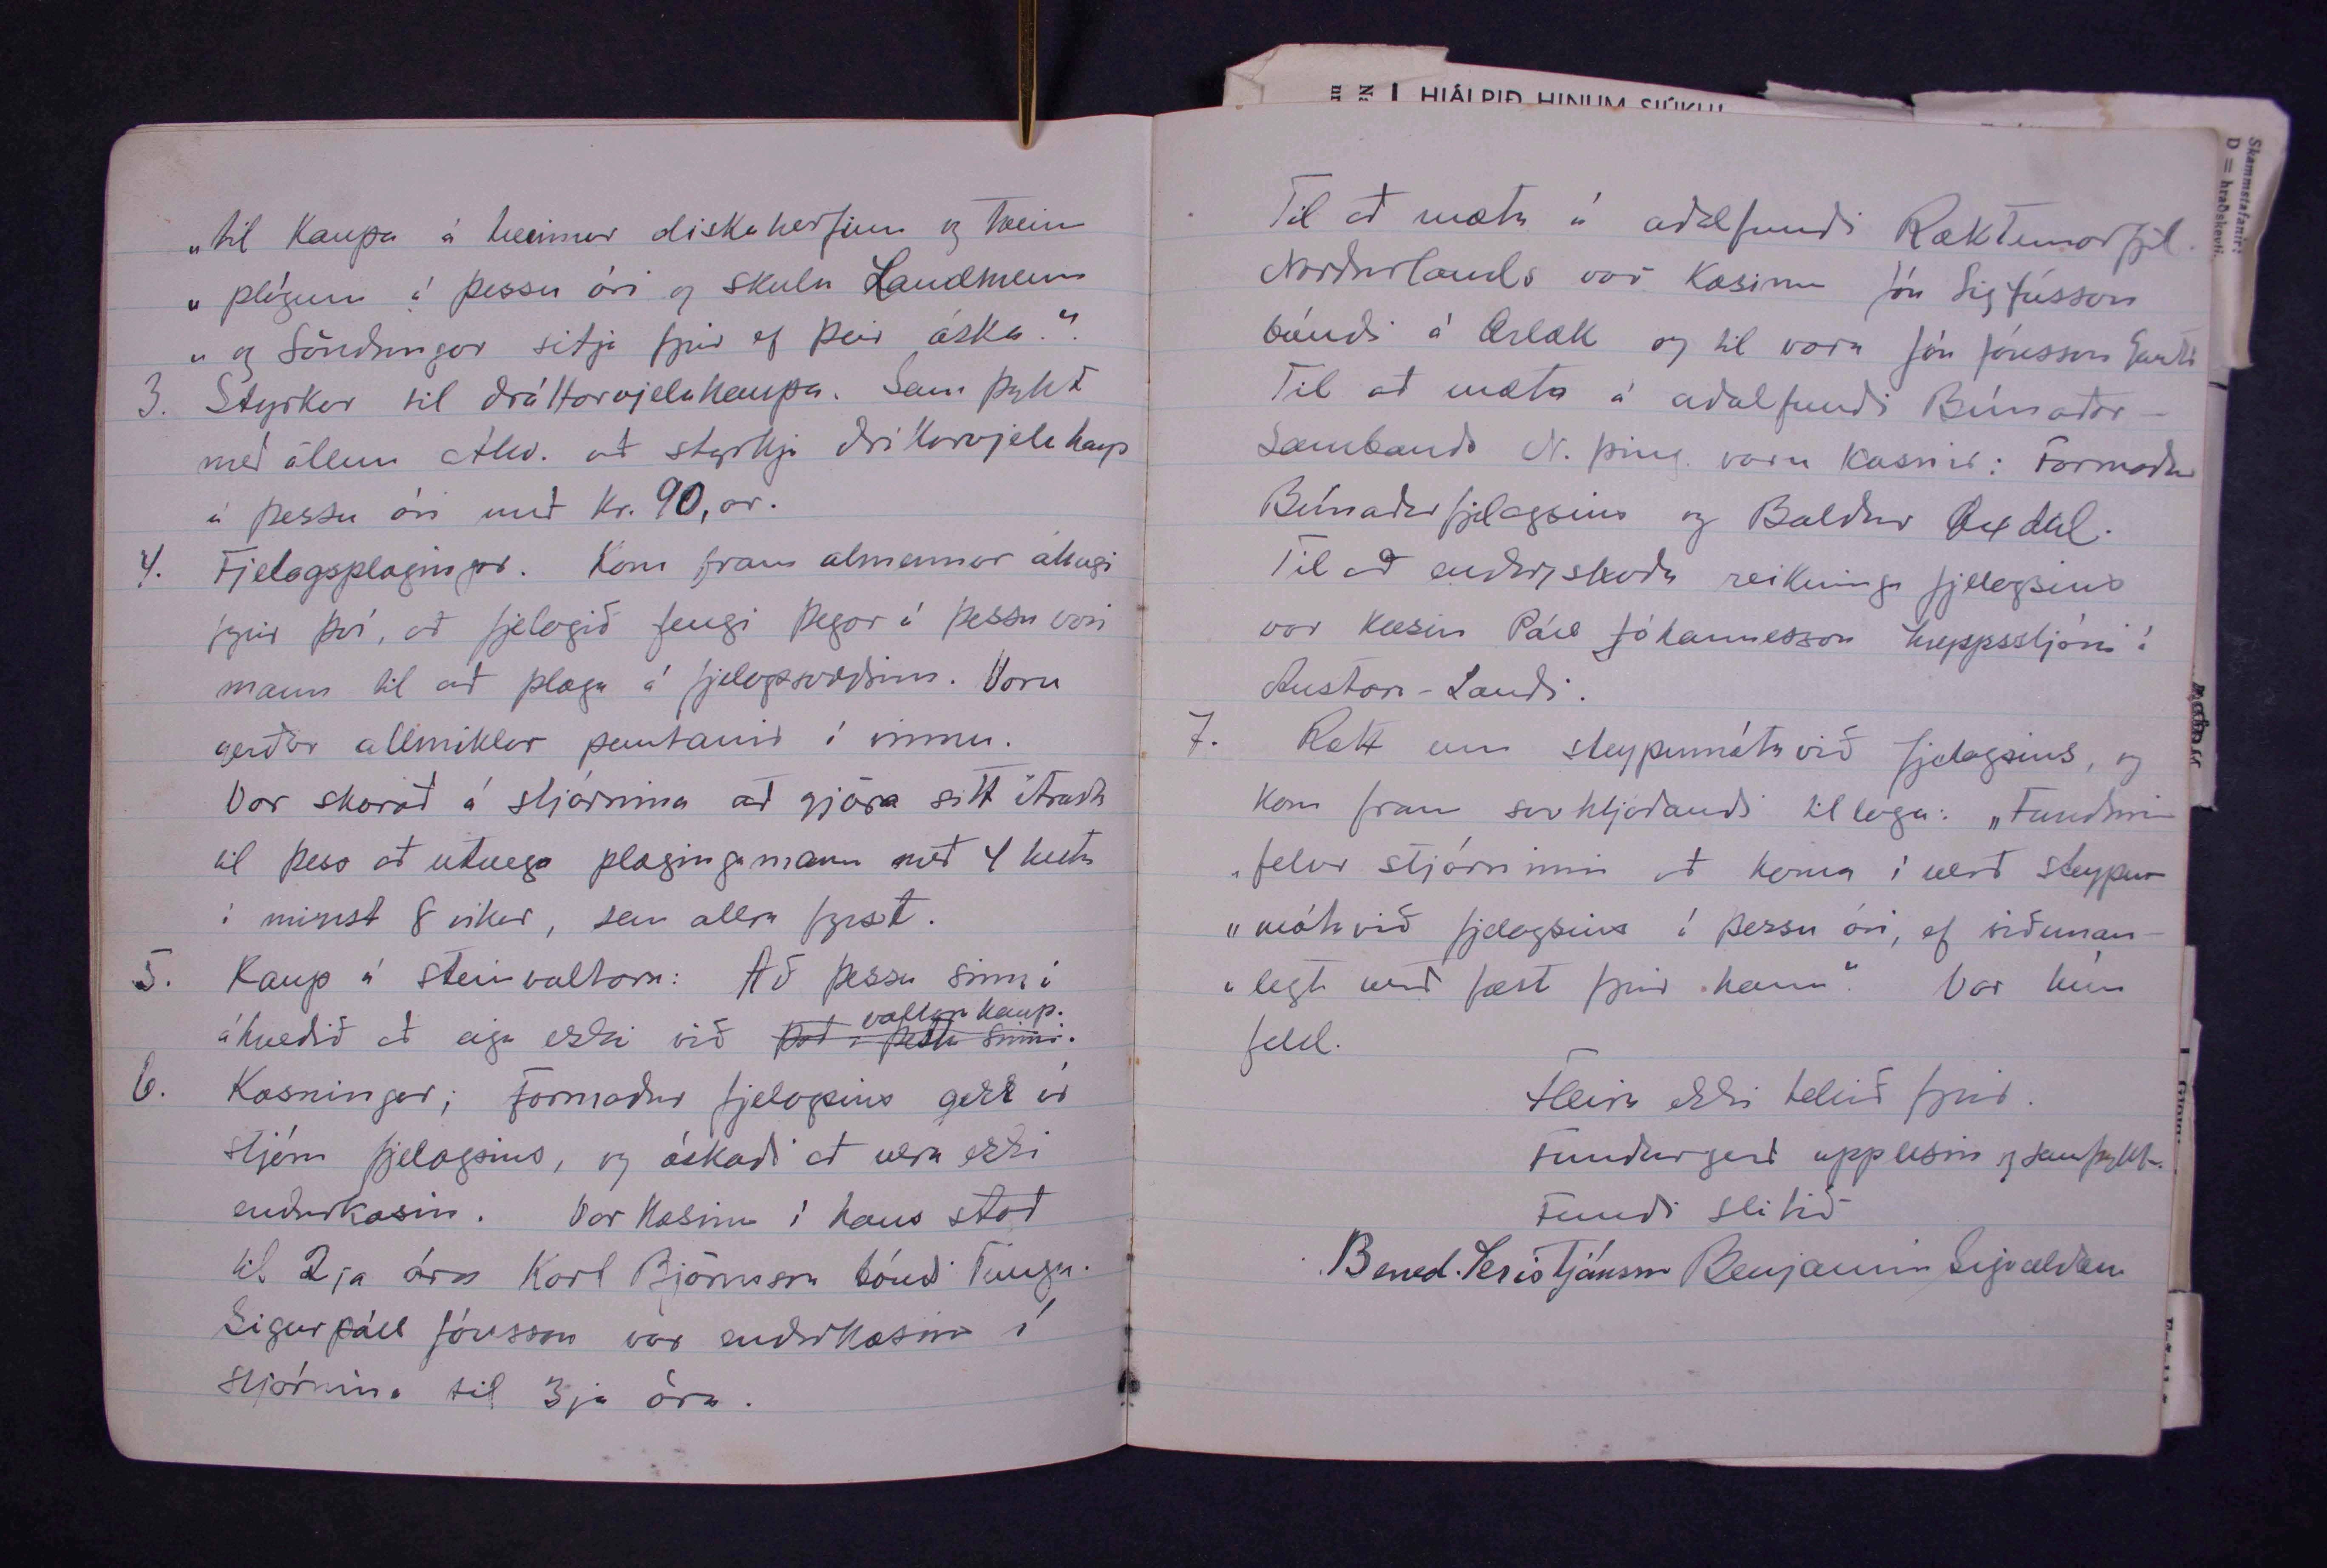 „til kaupa á tveimur diskaherfum og tveim
„ plógum á þessu ári og skulu Landmenn
„ og Söndungar sitja fyrir ef þeir óska."
3. Styrkur til dráttarvjelakaupa. Samþykt
með öllum atkv. að styrkja dráttarvjelakaup
á þessu ári með kr. 90,oo.
4. Fjelagsplægingar. Kom fram almennur áhugi
fyrir því, að fjelagið fengi þegar á þessu vori
mann til að plægja á fjelagssvæðinu. Voru
gerðar allmiklar pantanir í vinnu.
Var skorað á stjórnina að gjöra sitt ítrasta
til þess að útvega plægingamann með 4 hesta
í minst 8 vikur, sem allra fyrst.
5. Kaup á steinvaltara: Að þessu sinni
ákveðið að eiga ekki við það í þetta sinni. valtarakaup.
6. Kosningar; Formaður fjelagsins gekk úr
stjórn fjelagsins, og óskaði að vera ekki
endurkosin. Var kosinn í hans stað
til 2ja ára Karl Björnsson bóndi Tungu.
Sigurpáll Jónsson var endurkosinn í
stjórnina til 3ja ára.
Til að mæta á aðalfundi Ræktunarfjel.
Norðurlands var kosinn Jón Sigfússon
bóndi á Ærlæk og til vara Jón Jónsson Garði
Til að mæta á aðalfundi Búnaðar-
Sambands N. þing. voru kosnir: Formaður
Búnaðarfjelagsins og Baldur Öxdal.
Til að endurskoða reikninga fjelagsins
var kosin Páll Jóhannesson hreppsstjóri í
Austara-Landi.
7. Rætt um steypumótavið fjelagsins, og
kom fram svohljóðandi tillaga: „Fundurinn
„felur stjórninni að koma í verð steypu-
„mótavið fjelagsins á þessu ári, ef viðunan-
„legt verð fæst fyrir hann". Var hún
feld.
Fleira ekki tekið fyrir.
Fundargerð upplesin og samþykt.
Fundi slitið
Bened. Kristjánsson Benjamín Sigvaldason
HJÁLPIÐ HINUM SJÚKU!
Skammstafanir:
D = hraðskeyti.